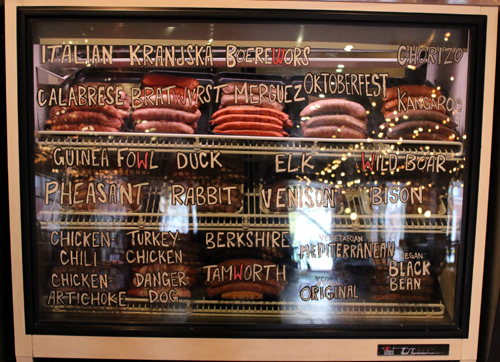 ITALIAN KRANJSKA BOEREWORS CHORIZO
CALABRESE BRATWURST MERGUEZ OKTOBERFEST KANGAROO
GUINEA FOWL DUCK ELK WILD BOAR
PHEASANT RABBIT VENISON BISON
CHICKEN CHILI
TURKEY CHICKEN
BERKSHIRE
VEGETARIAN MEDITERRANEAN
VEGAN BLACK BEAN
CHICKEN ARTICHOKE
DANGER DOG
TAMWORTH
ORIGINAL